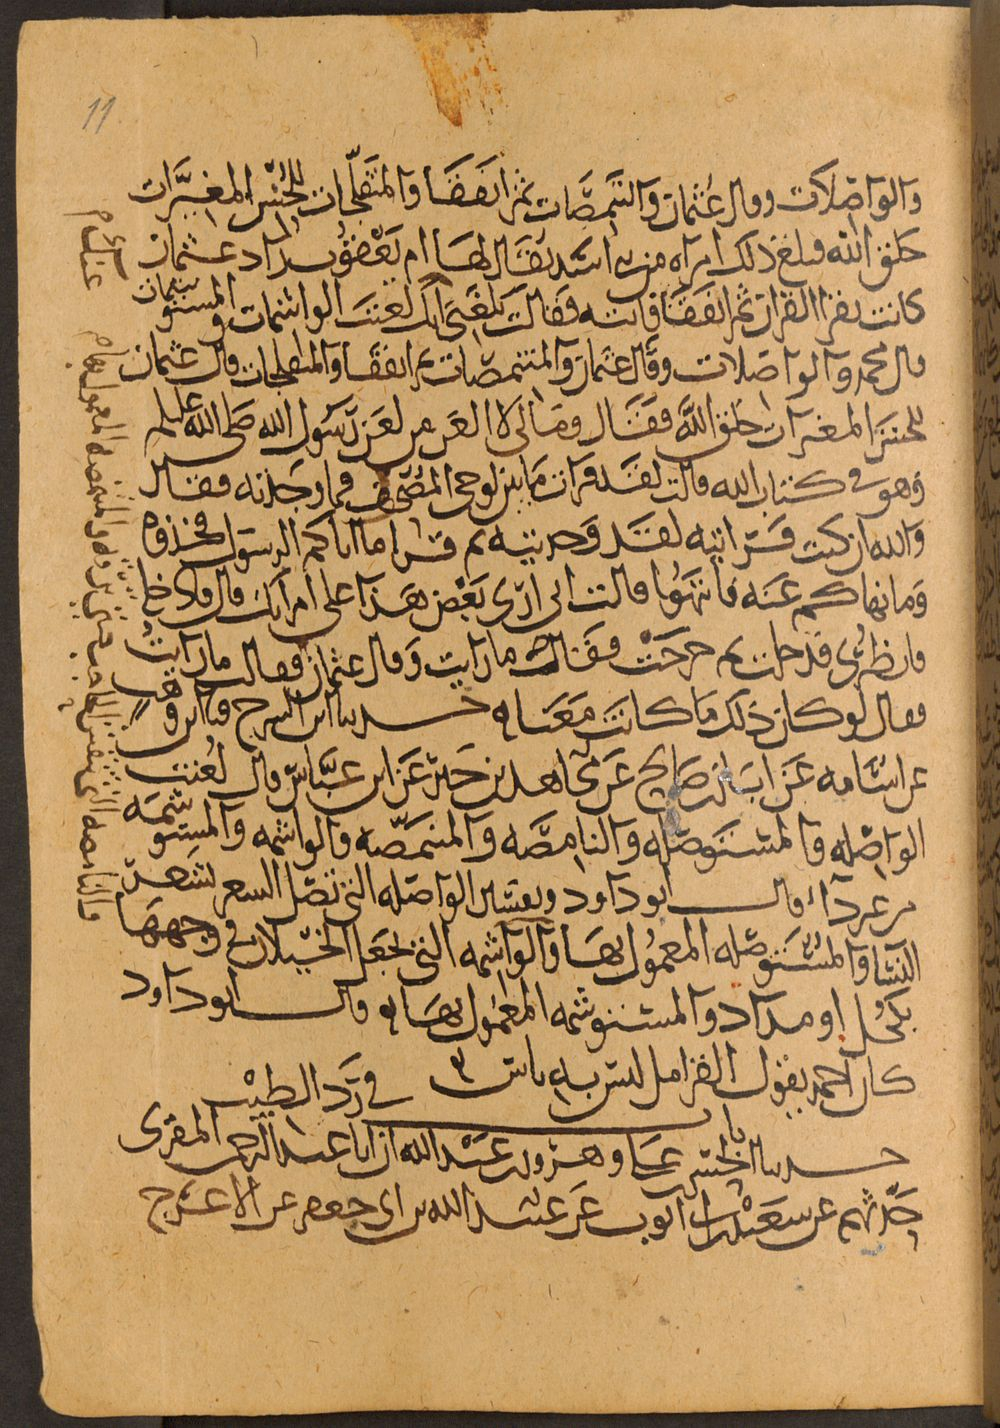 11
والواصلات وقال عثمان والمتنمصات ثم اتفقا والمتفلجات للحسن المغيرات
خلق الله فبلغ ذلك امراه من بني اسد يقال لها ام يعقوب زاد عثمان
كانت تقرا القران ثم اتفقا فاتته فقالت بلغني انك لعنت الواشمات والمستوشمات
قال محمد والواصلات وقال عثمان والمتنمصات ثم اتفقا والمتفلجات قال عثمان
للحسن المغيرات خلق الله فقال ومالي لا العن من لعن رسول الله صلى الله عليه وسلم
وهو في كتاب الله قالت لقد قرات ما بين لوحي المصحف فما وجدته فقال
والله ان كنت قراتيه لقد وجدتيه ثم قرا ما اتاكم الرسول فخذوه
وما نهاكم عنه فانتهوا قالت اني ارى بعض هذا على امراتك قال فادخلي
فانظري فدخلت ثم خرجت فقال ما رايت وقال عثمان فقالت ما رايت
فقال لو كان ذلك ما كانت معنا حدثنا ابن السرح قثا ابن وهب
عن اسامه عن ابان بن صالح عن مجاهد بن جبر عن ابن عباس قال لعنت
الواصله والمستوصله والنامصه والمتنمصه والواشمه والمستوشمه
من غير داء قال ابو داود وتفسير الواصله التي تصل الشعر بشعر
النسا والمستوصله المعمول بها والواشمه التي تجعل الخيلان في وجهها
بكحل او مداد والمستوشمه المعمول بها قال ابو داود
كان احمد يقول القرامل ليس به باس في رد الطيب
حدثنا الحسن بن علي وهرون بن عبد الله ان ابا عبد الرحمن المقرى
حدثهم عن سعيد بن ابي ايوب عن عبيد الله بن ابي جعفر عن الاعرج
والنامصه التي تنقش الحاجب حتى ترقه والمتنمصه المعمول بها